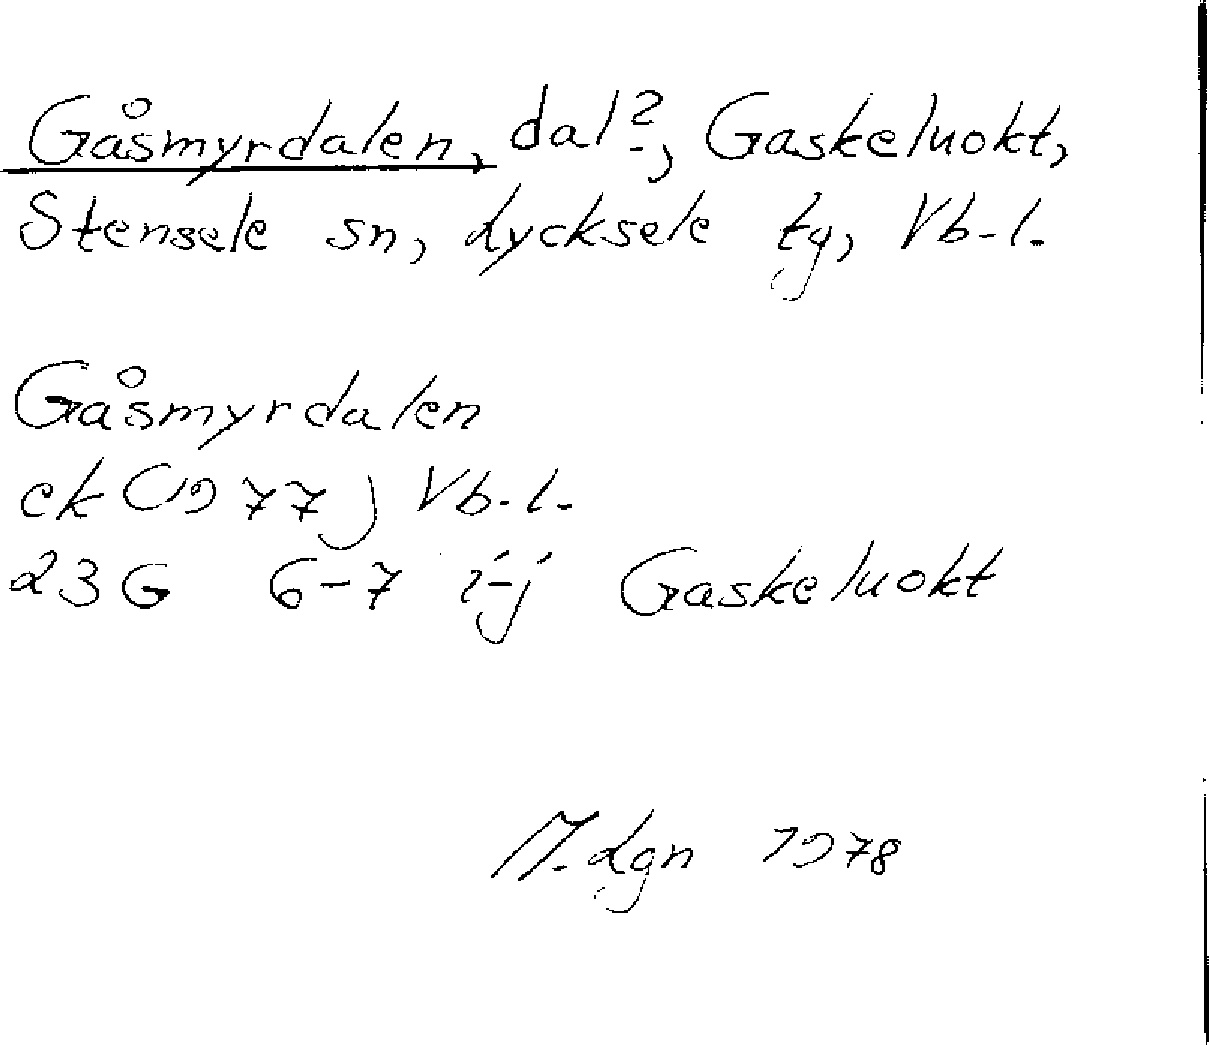 Gåsmyrdalen, dal?, Gaskeluokt,
Stensele sn, Lycksele tg, Vb-l.
Gåsmyrdalen
ek (1977) Vb-l.
23G 6-7 i-j Gaskeluokt
M. Lgn 1978